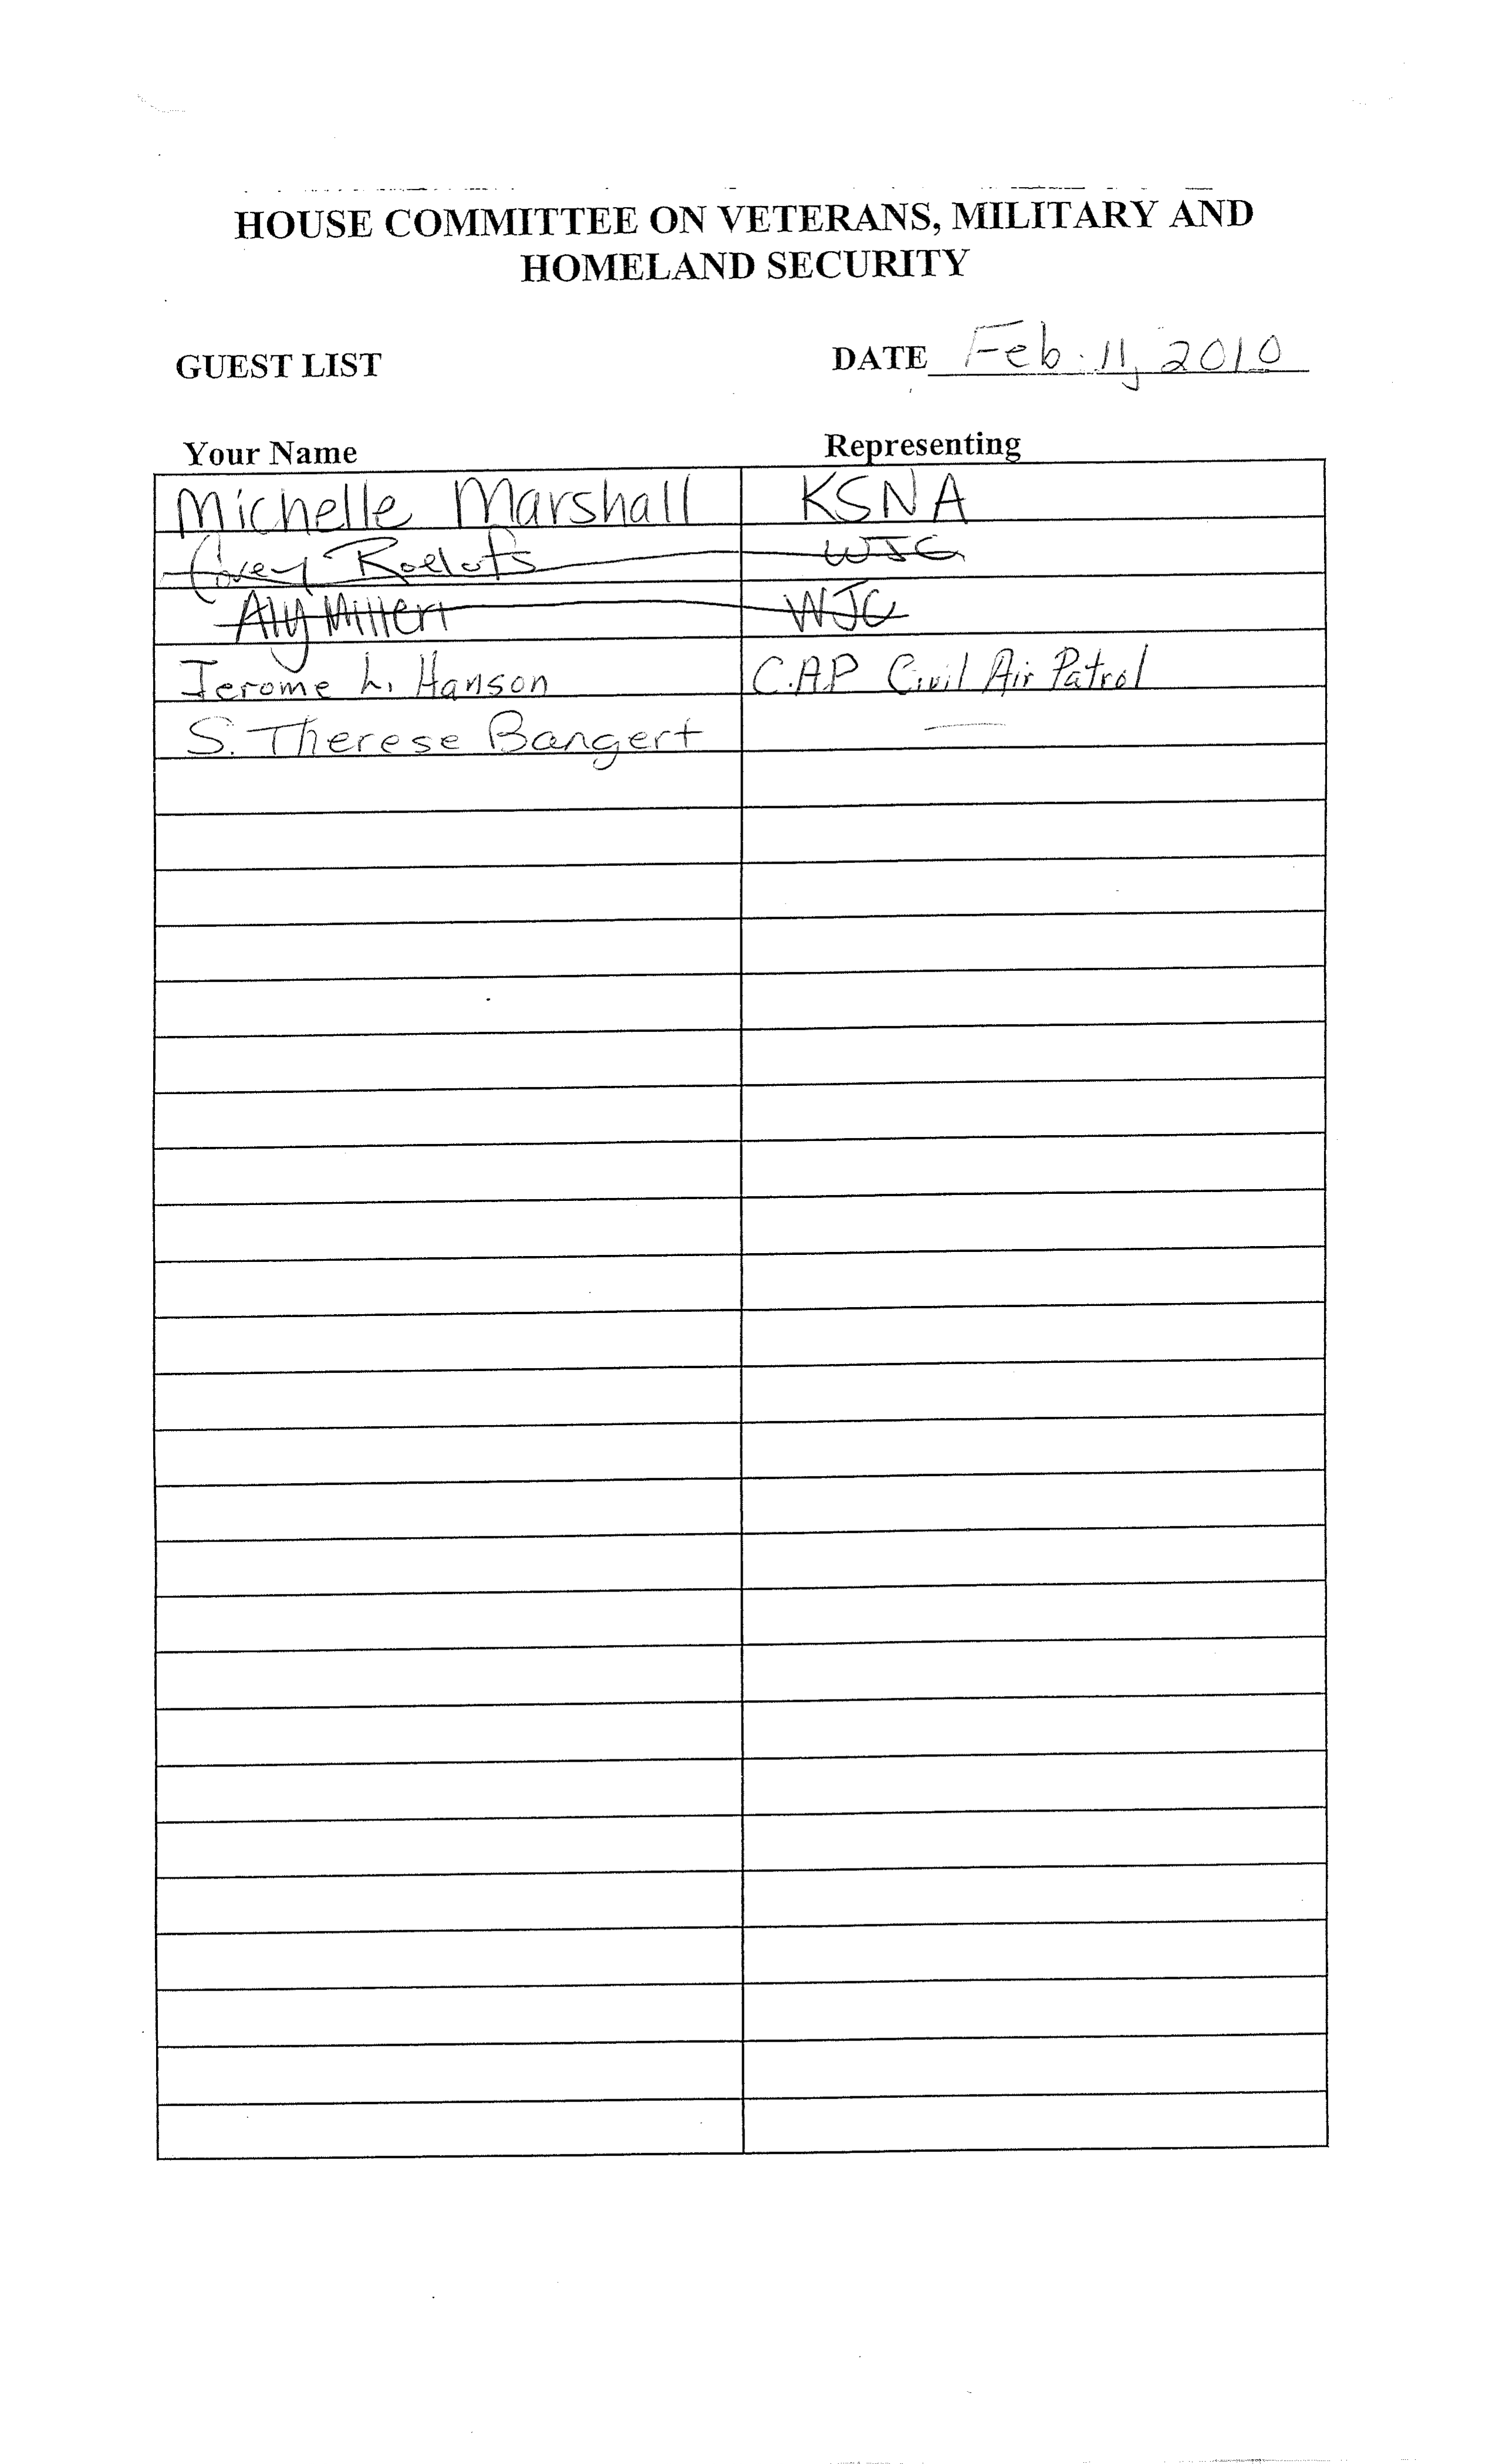 HOUSE COMMITTEE ON VETERANS, MILITARY AND
HOMELAND SECURITY
GUEST LIST DATE Feb. 11, 2010
Your Name Representing
Michelle Marshall KSNA
Corey WJC
Aly Miller WJC
Jerome L. Hanson C.A.P Civil Air Patrol
S. Therese Bangert —